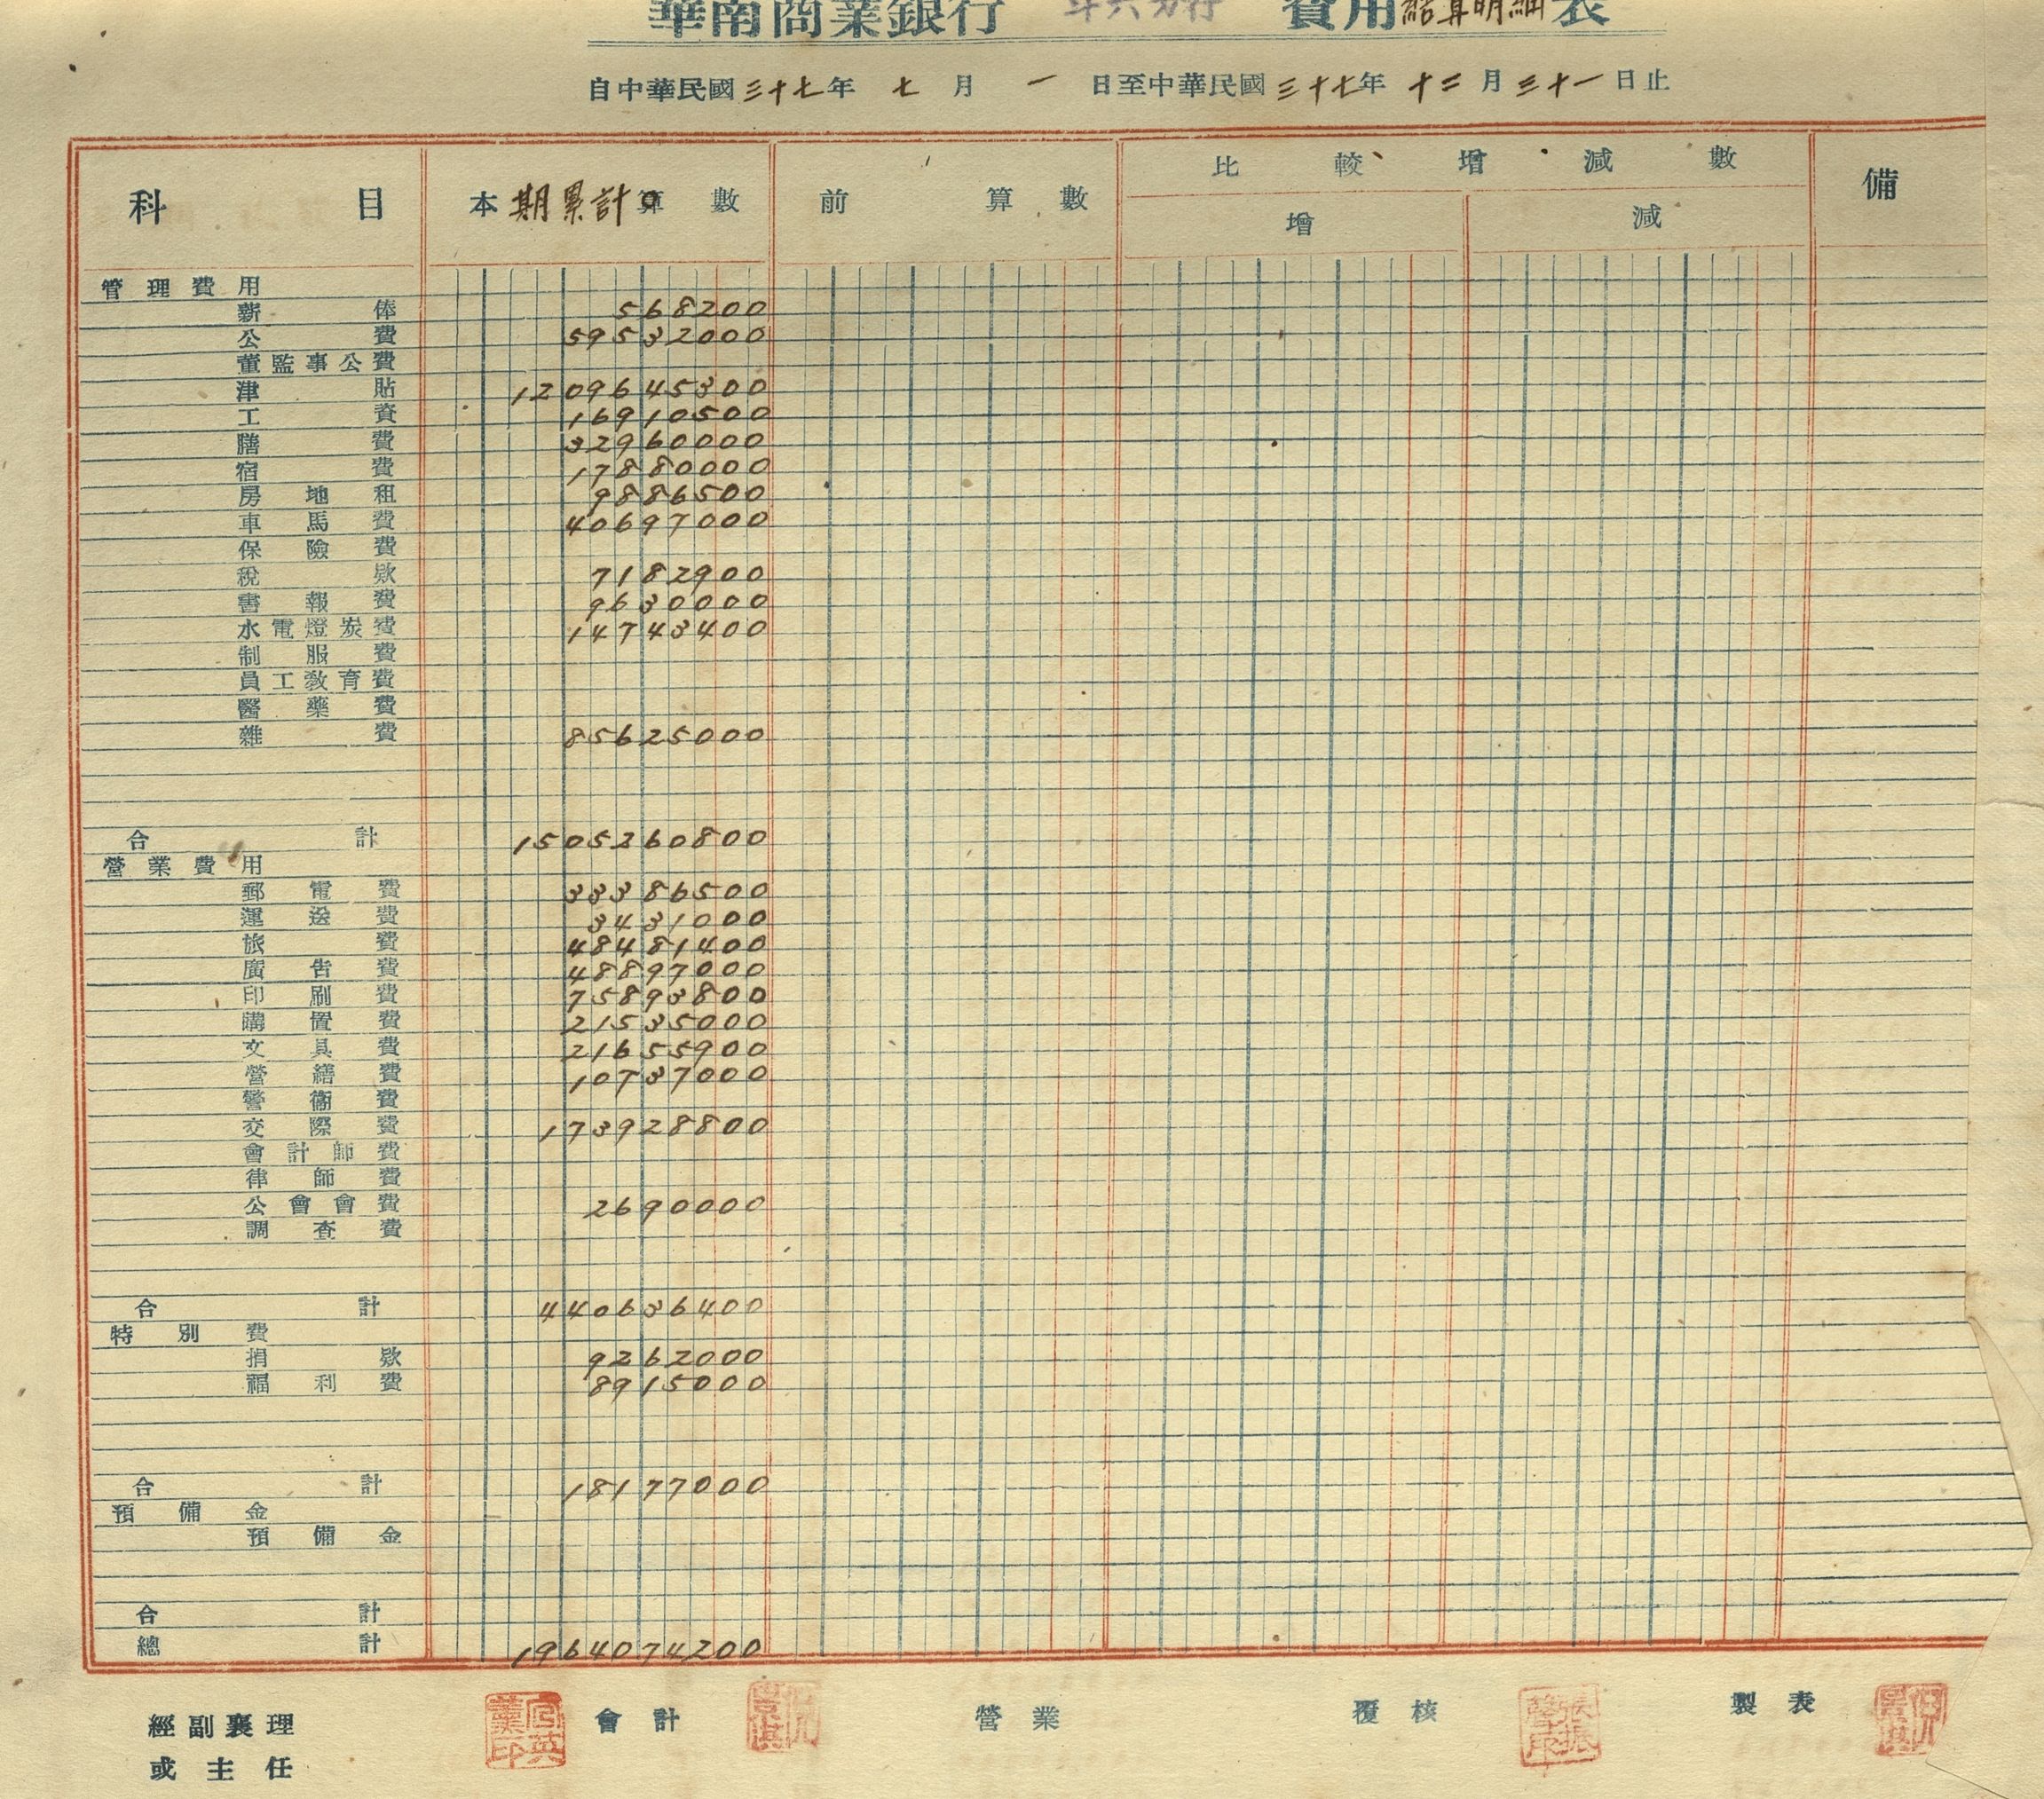 華南商業銀行 斗六分行 費用結算明細表
自中華民國三十七年 七月 一日至中華民國三十七年 十二月三十一日止
科目 本期累計算數 前 算數 比較增減數 備
增 減
管理費用
薪俸 568200
公費 59532000
董監事公費
津貼 1209645300
工資 16910500
膳費 32960000
宿費 17880000
房地租 9886500
車馬費 40697000
保險費
稅款 7182900
書報費 9630000
水電燈炭費 14743400
制服費
員工教育費
醫藥費
雜費 85625000
合計 1505260800
營業費用
郵電費 33386500
運送費 3431000
旅費 48481400
廣告費 48897000
印刷費 75893800
購置費 21535000
文具費 21655900
營繕費 10737000
警衞費
交際費 173928800
會計師費
律師費
公會會費 2690000
調查費
合計 440636400
特別費
捐款 9262000
福利費 8915000
合計 18177000
預備金
預備金
合計
總計 1964074200
經副襄理 會計 營業 覆核 製表
或主任